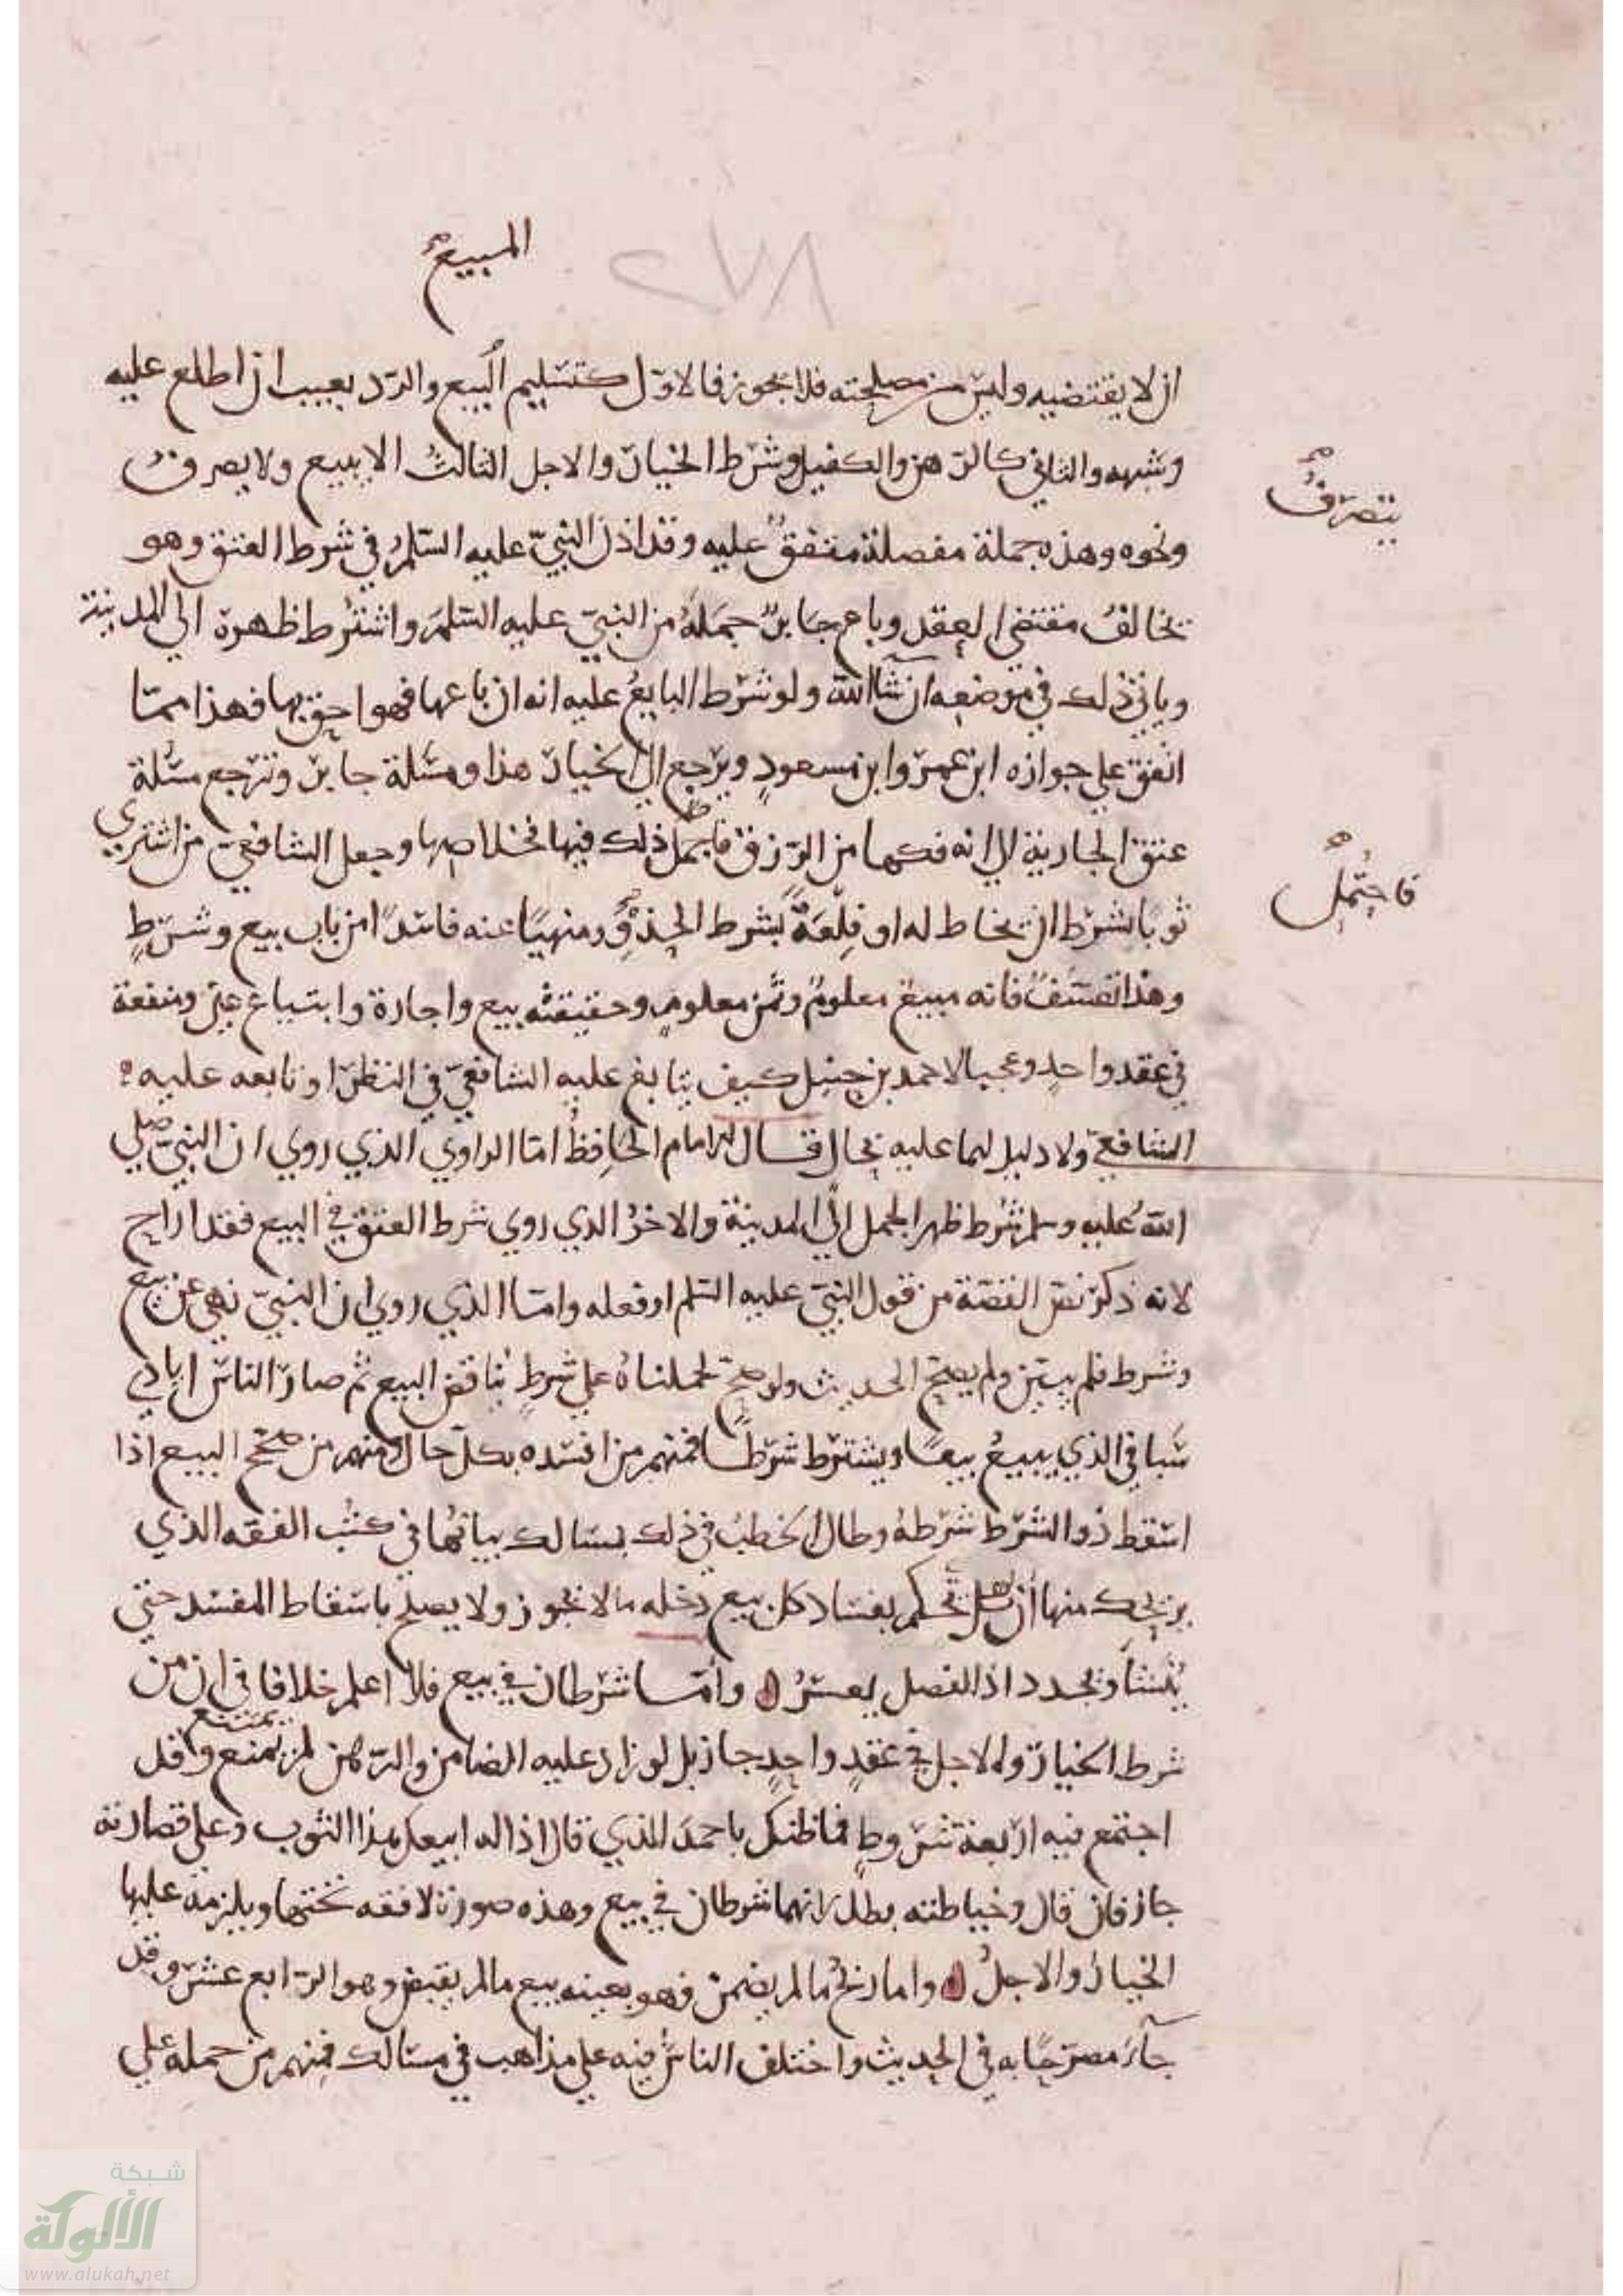 المبيع صح
٢٧٨
ان لا يقتضيه وليس من مصلحته فلا يجوز فالاول كتسليم البيع والرد بعيب ان اطلع عليه
وشبهه والثاني كالرهن والكفيل وشرط الخيار والاجل الثالث الا يبيع ولا يصرف
يتصرف صح
ونحوه وهذه جملة مفصلة متفق عليه وقد اذن النبي عليه السلم في شرط العتق وهو
يخالف مقتضى العقد وباع جابر جمله من النبي عليه السلم واشترط ظهره الى المدينة
وياتي ذلك في موضعه ان شاالله ولو شرط البايع عليه انه ان باعها فهو احق بها فهذا مما
اتفق على جوازه ابن عمر وابن مسعود ويرجع الى الخيار هذا ومسلة جابر وترجع مسلة
عتق الجارية الى انه فكها من الرق فاحتمل ذلك فيها لخلاصها وجعل الشافعي من اشترى
فاحتمل صح
ثوبا بشرط ان يخاط له او قلعة بشرط الحذو منهيا عنه فاسدا من باب بيع وشرط
وهذا تعسف فانه مبيع معلوم وثمن معلوم وحقيقته بيع واجارة وابتياع عين ومنفعة
في عقد واحد وعجبا لاحمد بن حنبل كيف يتابع عليه الشافعي في النظر او تابعه عليه
الشافعي ولا دليل لهما عليه بحال قال الامام الحافظ اما الراوي الذي روى ان النبي صلى
الله عليه وسلم شرط ظهر الجمل الى المدينة والاخر الذي روى شرط العتق في البيع فقد اراح
لانه ذكر نص القصة من قول النبي عليه السلم او فعله واما الذي روى ان النبي نهى عن بيع
وشرط فلم يبين ولم يصح الحديث ولو صح لحملناه على شرط يناقض البيع ثم صار الناس ايادي
سبا في الذي يبيع بيعا ويشترط شرطا فمنهم من افسده بكل حال ومنهم من صحح البيع اذا
اسقط ذو الشرط شرطه وطال الخطب في ذلك بمسالك بيانها في كتب الفقه الذي
يزيحك منها ان تحكم بفساد كل بيع دخله ما لا يجوز ولا يصلح باسقاط المفسد حتى
ينشا ويجدد اذ الفصل يعسر ه واما شرطان في بيع فلا اعلم خلافا في ان من
شرط الخيار والاجل في عقد واحد جاز بل لو زاد عليه الضامن والرهن لم يمتنع وقد
يمتنع
اجتمع فيه اربعة شروط فما ظنك باحمد الذي قال اذا له ابيعك هذا الثوب وعلي قصارته
جاز فان قال وخياطته بطل لانهما شرطان في بيع وهذه صورة لا فقه تحتها ويلزمه عليها
الخيار والاجل ه واما ربح ما لم يضمن فهو بعينه بيع ما لم يقبض وهو الرابع عشر وقد
جآء مصرحا به في الحديث واختلف الناس فيه على مذاهب في مسالك فمنهم من حمله على
شبكة
الألوكة
www.alukah.net